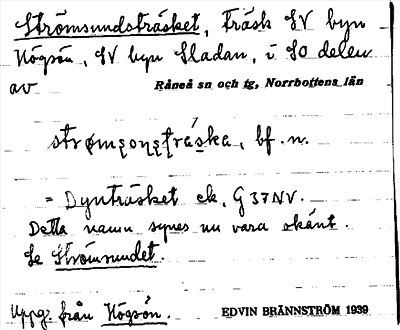 Strömsundsträsket, Träsk SV byn
Högsön, SV byn Sladan, i SO delen
av Råneå sn och tg, Norrbottens län
strømsonstráska, bf. n.
= Dynträsket ek. G 37 NV.
Detta namn synes nu vara okänt.
Se Strömsundet.
Uppg. från Högsön. EDVIN BRÄNNSTRÖM 1939